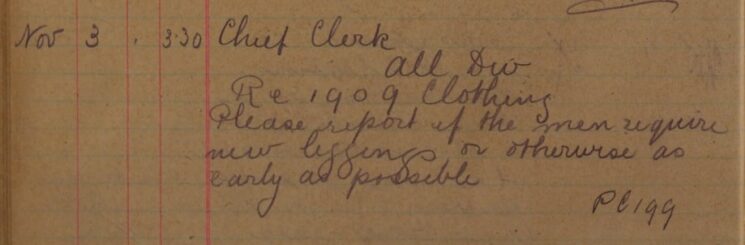 Nov 3 . 3.30 Chief Clerk
All Div
Re 1909 Clothing
Please report if the men require
new leggings or otherwise as
early as possible
PC 199